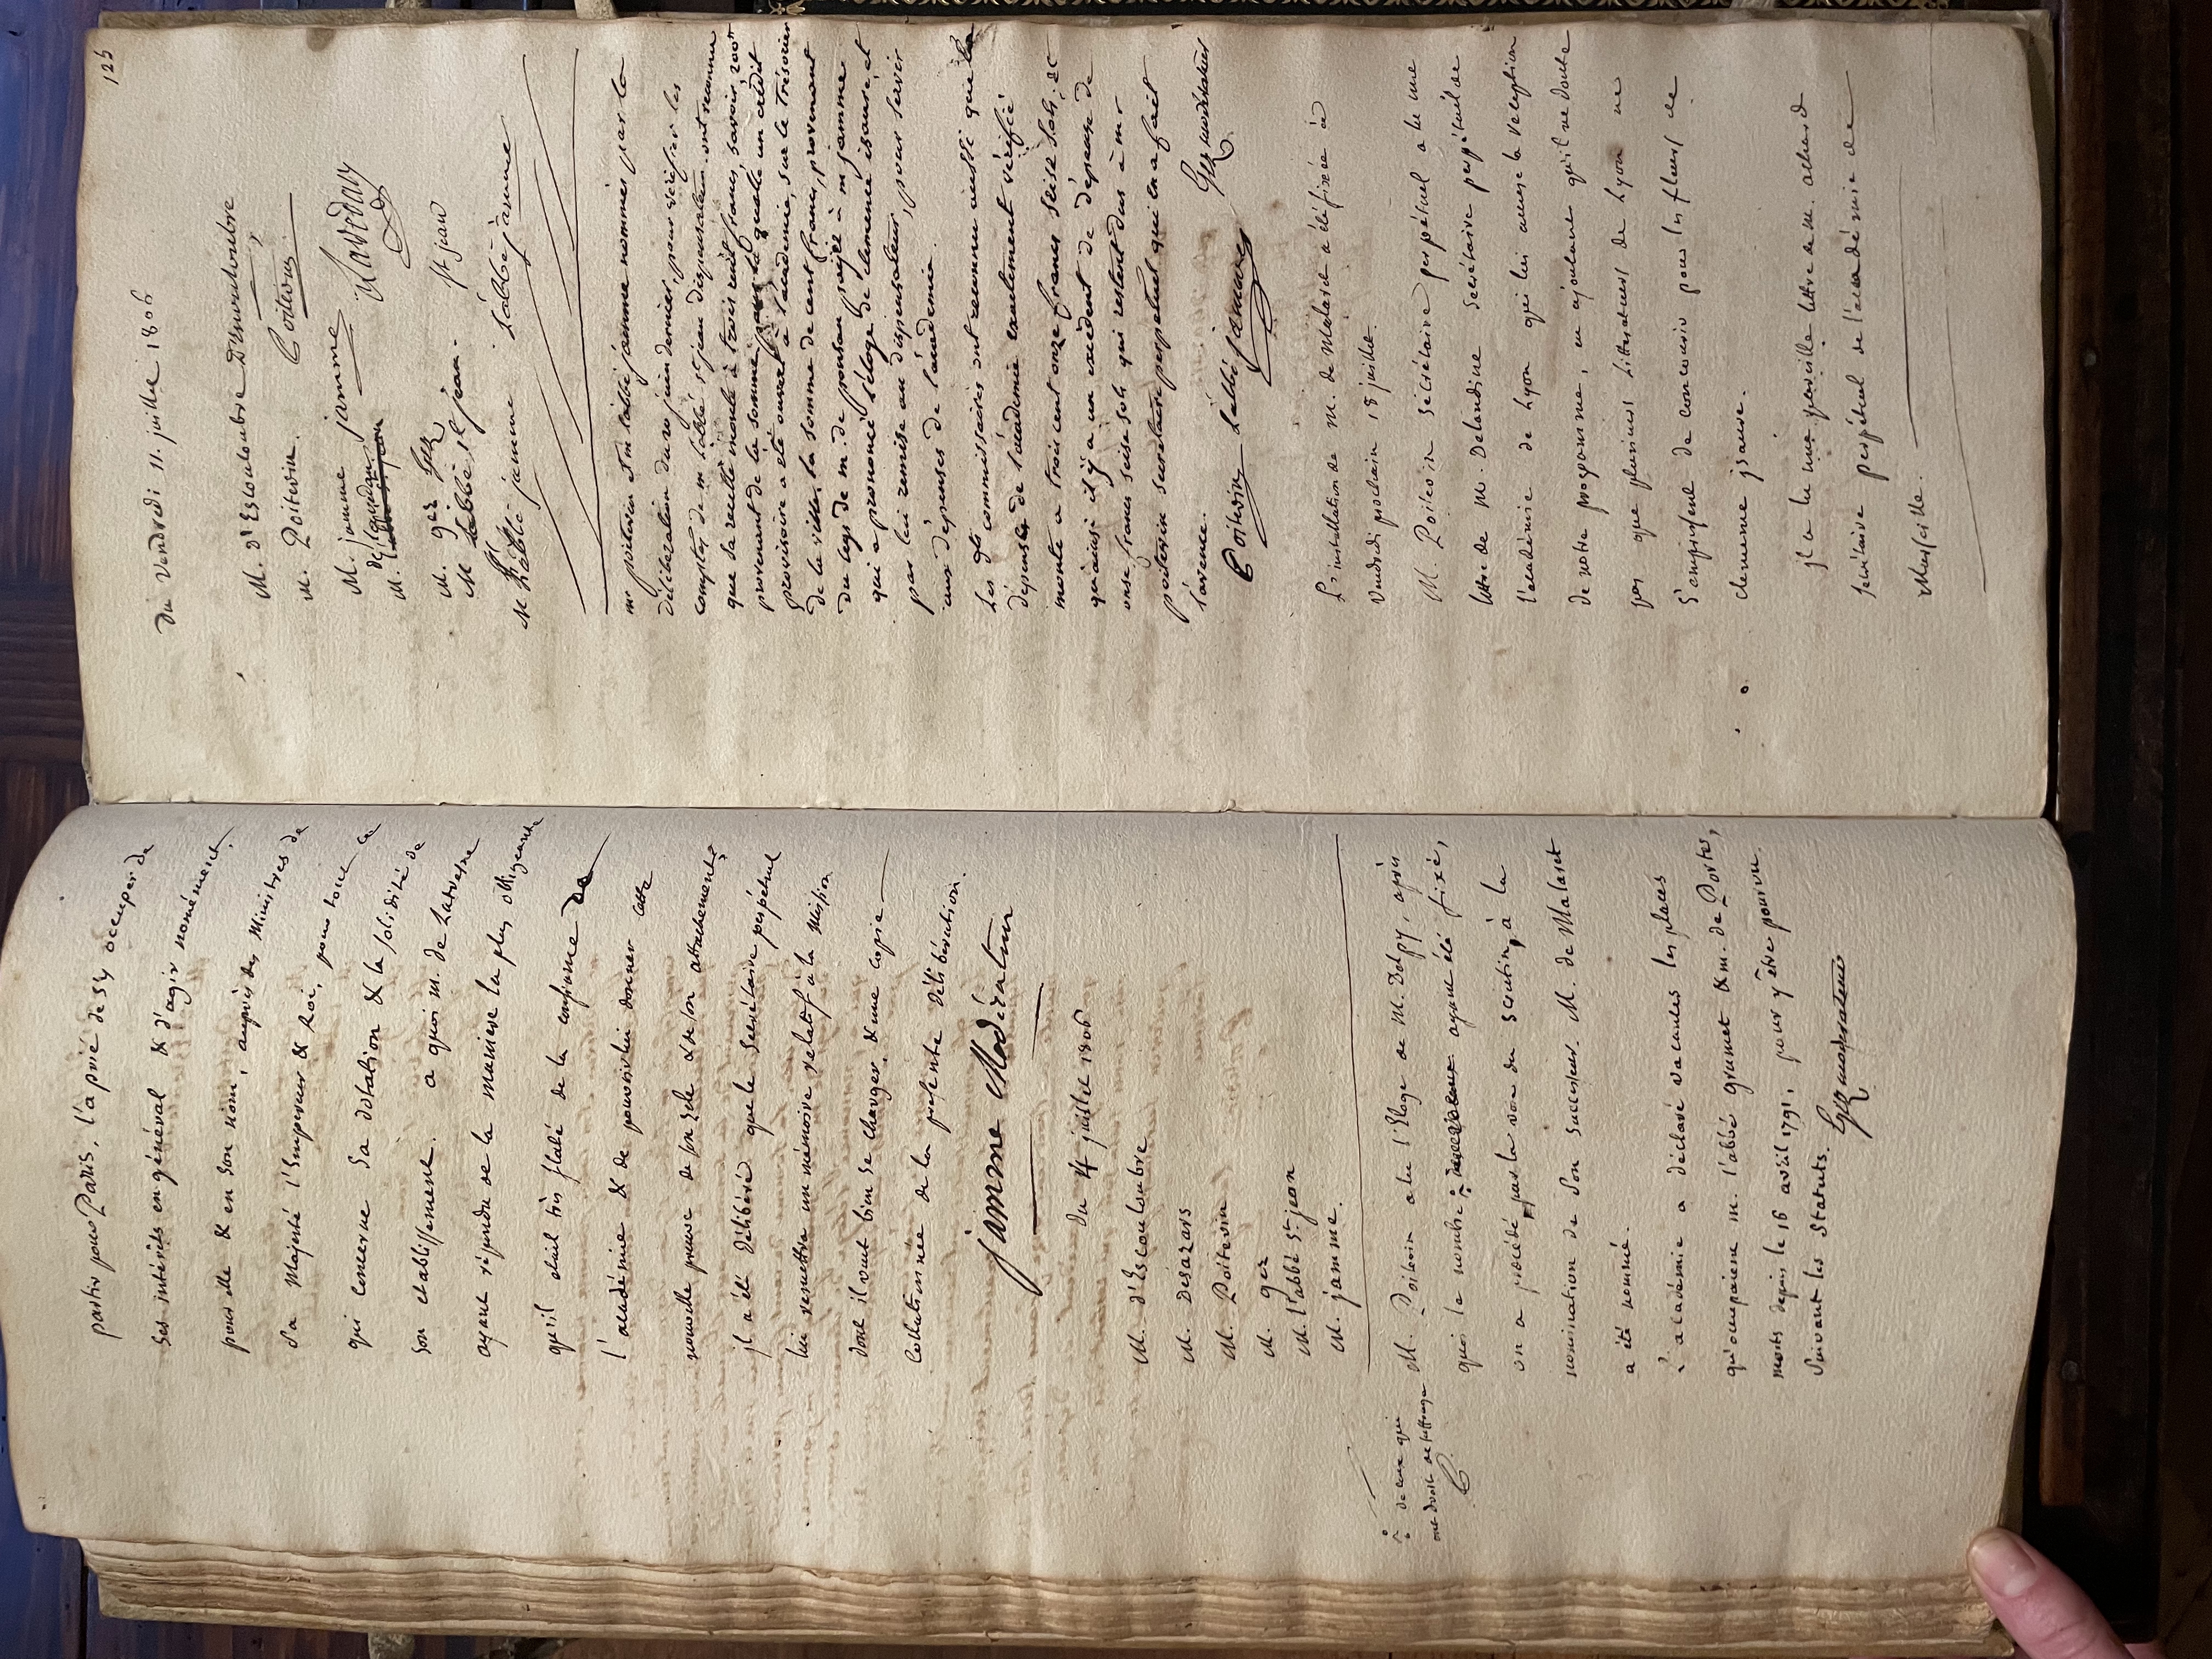 partir pour Paris, l'a prié de s'y occuper de
ses intérêts en général & d'agir nomément,
pour elle & en son nom, auprès des Ministres de
Sa Majesté l'Empereur & Roi, pour tout ce
qui concerne Sa dotation & la solidité de
son etablissement. a quoi m. de Lavesne
ayant répondu de la maniere la plus obligeante
qu'il etait très flatté de la confiance de
l'académie & de pouvoir lui donner cette
nouvelle preuve de son zele & de son attachement,
il a été délibéré que le Secrétaire perpétuel
lui remettra un mémoire relatif à la mission
dont il veut bien se charger, & une copie
collationnée de la presente délibération.
jamme Modérateur
du 4 juillet 1806
M. d'Escouloubre
M. Désazars
M. Poitevin
M. gez
M. l'abbé St. jean
M. jamme.
M. Poitevin a lu l'Eloge de M. Dolpy, après
quoi le nombre ayant été fixé,
de ceux qui
ont droit de suffrage
on a procédé par la voie du scrutin, à la
nomination de Son Successeur. M. de Malaret
a été nommé.
L'académie a déclaré vacantes les places
qu'occupaient m. l'abbé grumet & m. de Portes,
morts depuis le 16 avril 1791, pour y être pourvu
Suivant les Statuts.
Gez moderateur
125
du Vendredi 11. juillet 1806
M. d'Escouloubre D'Escouloubre
M. Poitevin. Poitevin
M. jamme jamme
M. gez Gez
M l'abbé st jean. St jean
M l'abbé jamme L'abbé jamme
mr poitevin et m l'abbé jamme nommés par la
délibération du 20 juin dernier, pour vérifier les
comptes de m l'abbé st jean dispensateur, ont reconnu
que sa recette monte à trois cent francs, savoir, 200 fr
provenant de la somme pour laquelle un crédit
provisoire a été ouvert à l'académie, sur le trésorier
de la ville, & la somme de cent francs, provenant
du legs de m. de ponsan, payée à m jamme
qui a prononcé l'éloge de clemence isaure, et
par lui remise au dispensateur, pour servir
aux dépenses de l'académie.
Les dts commissaires ont reconnu aussi que la
dépense de l'académie exactement vérifié
monte a trois cent onze francs seise sols, et
qu'ainsi il y a un excédent de dépense de
onze francs seise sols qui restent dus à mr
poitevin secretaire perpetuel qui en a fait
l'avence. Gez moderateur
Poitevin L'abbé jamme
L'installation de M. de Malaret a été fixée à
Vendredi prochain 18 juillet.
M. Poitevin Sécrétaire perpétuel a lu une
lettre de M. Delandine Secrétaire perpétuel de
l'académie de Lyon qui lui accuse la reception
de notre programme, en ajoutant qu'il ne doute
pas que plusieurs Littérateurs de Lyon ne
S'empressent de concourir pour les fleurs de
clemence isaure.
il a lu une pareille lettre de M. achard
Secrétaire perpétuel de l'académie de
Marseille.